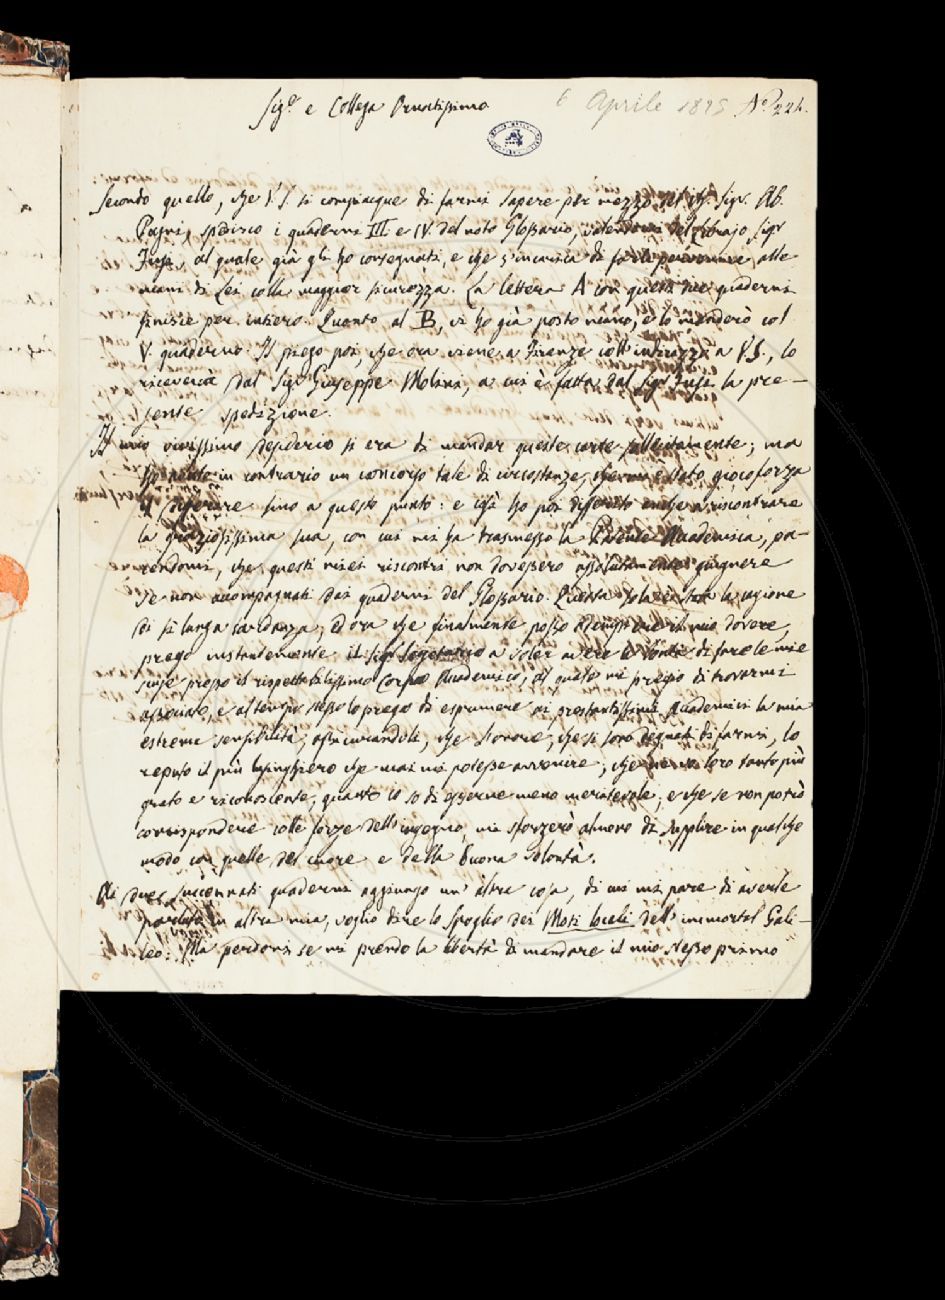 Sig.e e Collega Prestantissimo
6 Aprile 1825 N.o 224.
Secondo quello, che V.S. si compiacque di farmi sapere per mezzo del Sigr. Ab.
Pagni, spedisco i quaderni III e IV. del noto Glossario, valendomi del Librajo Sigr
al quale già gli ho consegnati, e che s'incarica di farli pervenire alle
mani di Lei colla maggior sicurezza. La lettera A con questi due quaderni
finisce per intiero. Quanto al B, vi ho già posto mano, e lo manderò col
V. quaderno. Il piego poi, che ora viene a Firenze coll'indirizzo a V.S., lo
riceverà dal Sigr Giuseppe Molini, a cui è fatta dal Sigr la pre-
sente spedizione.
Il mio vivissimo desiderio si era di mandar queste carte sollecitamente; ma
ho in contrario un concorso tale di circostanze, che mi è stato giocoforza
il differire fino a questo punto: e così ho poi differito anche a riscontrare
la graziosissima sua, con cui mi ha trasmesso la Patente Accademica, pa-
rendomi, che questi miei riscontri non dovessero assolutamente giugnere
se non accompagnati dai quaderni del Glossario. Questa sola è stata la cagione
di sì lunga tardanza; ed ora che finalmente posso adempiere il mio dovere,
prego instantemente il Sigr Segretario a voler avere la bontà di fare le mie
scuse presso il rispettabilissimo Corpo Accademico, al quale mi pregio di trovarmi
associato, e al tempo stesso lo prego di esprimere ai prestantissimi Accademici la mia
estrema sensibilità, assicurandoli, che l'onore, che si sono degnati di farmi, lo
reputo il più lusinghiero che mai mi potesse avvenire; che ne son loro tanto più
grato e riconoscente, quanto io so di esserne meno meritevole; e che se non potrò
corrispondere colle forze dell'ingegno, mi sforzerò almeno di supplire in qualche
modo con quelle del cuore e della buona volontà.
Ai due succennati quaderni aggiungo un'altra cosa, di cui mi pare di averle
parlato in altra mia, voglio dire lo spoglio dei Moti locali dell'immortal Gali-
leo. Ma perdoni se mi prendo la libertà di mandare il mio stesso primo